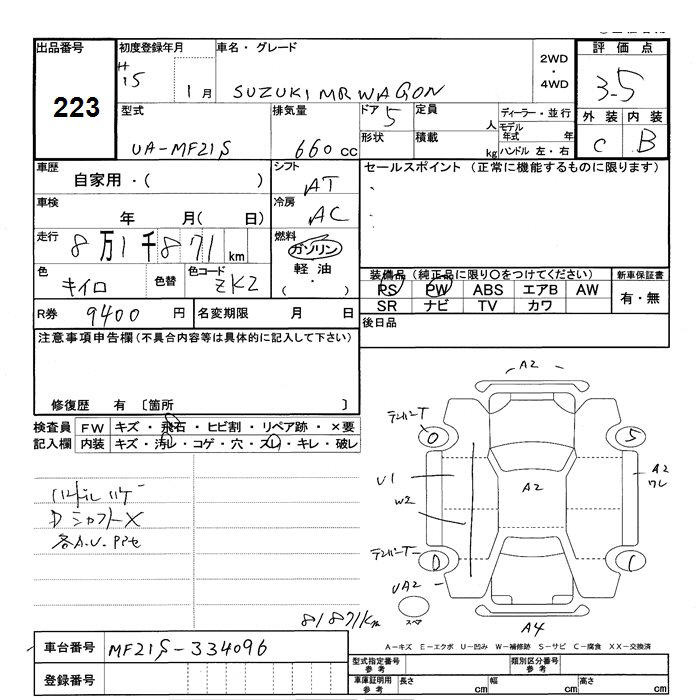 出品番号 初度登録年月 車名・グレード 2WD・4WD 評価点
223
H15 1月 SUZUKI MR WAGON 3.5
型式 排気量 ドア 5 定員 人 ディーラー・並行 外装 内装
UA-MF21S 660cc 形状 積載 kg モデル年式 年 ハンドル 左・右 C B
車歴 自家用・( ) シフト AT セールスポイント (正常に機能するものに限ります)
車検 年 月( 日) 冷房 AC
走行 8万1千871km 燃料 ガソリン 軽油 ( ・ )
色 キイロ 色替 色コード ZK2
装備品 (純正品に限り○をつけてください) 新車保証書
PS PW ABS エアB AW 有・無
SR ナビ TV カワ
R券 9400円 名変期限 月 日
後日品
注意事項申告欄(不具合内容等は具体的に記入して下さい)
修復歴 有 〔箇所 〕
検査員 FW キズ・飛石・ヒビ割・リペア跡・×要
記入欄 内装 キズ・汚レ・コゲ・穴・スレ・キレ・破レ
ハンドル ハゲ
D シャフト X
各A.U.
A2
テンパーT
0
5
U1
W2
A2
A2
ワレ
テンパーT
D
C
UA2
スペア
A4
81871km
車台番号 MF21S-334096
登録番号
A-キズ E-エクボ U-凹み W-補修跡 S-サビ C-腐食 XX-交換済
型式指定番号 参考 類別区分番号 参考
車庫証明用 参考 長さ cm 幅 cm 高さ cm